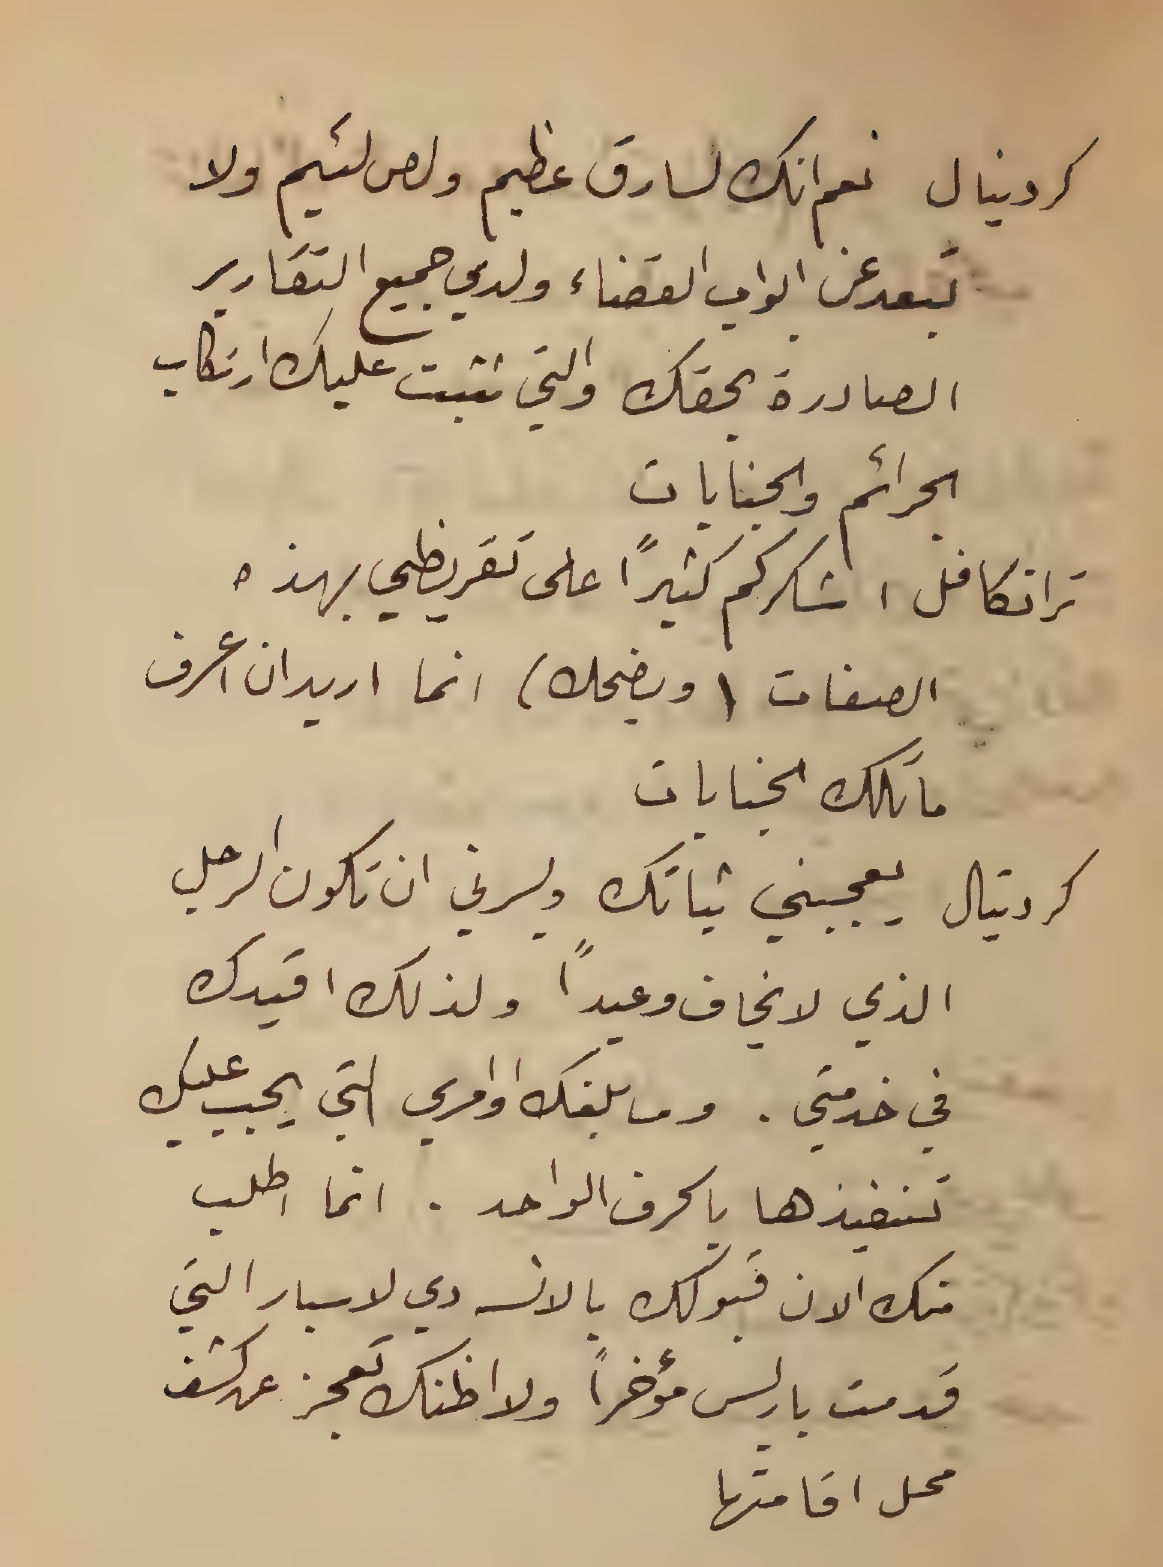 كردينال نعم انك لسارق عظيم ولص لئيم ولا
تبعد عن ابواب القضاء ولدي جميع التقارير
الصادرة بحقك والتي تثبت عليك ارتكاب
الجرائم والجنايات
ترانكافل اشكركم كثيراً على تقريظي بهذه
الصفات (ويضحك) انما اريد ان اعرف
ما تلك الجنايات
كردينال يعجبني ثباتك ويسرني ان تكون الرجل
الذي لا يخاف وعيداً ولذلك اقيدك
في خدمتي . وسابلغك اوامري التي يجب عليك
تنفيذها بالحرف الواحد . انما اطلب
منك الان قبولك بالانسه دي لاسبار التي
قدمت باريس مؤخراً ولا اظنك تعجز عن كشف
محل اقامتها